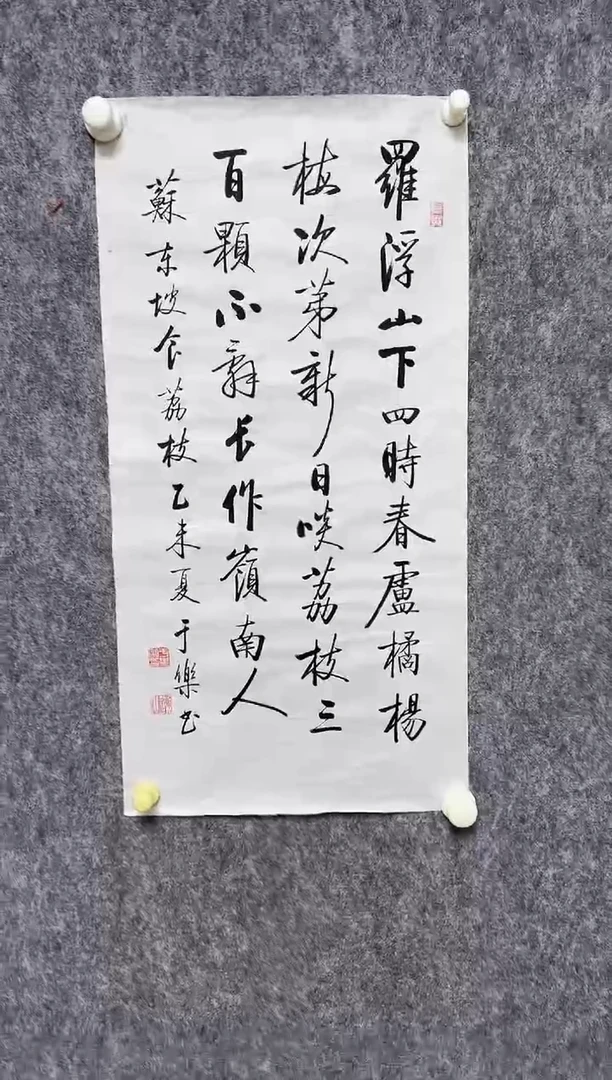 羅浮山下四時春盧橘楊
梅次第新日啖荔枝三
百顆不辭长作嶺南人
蘇东坡食荔枝乙未夏于樂书